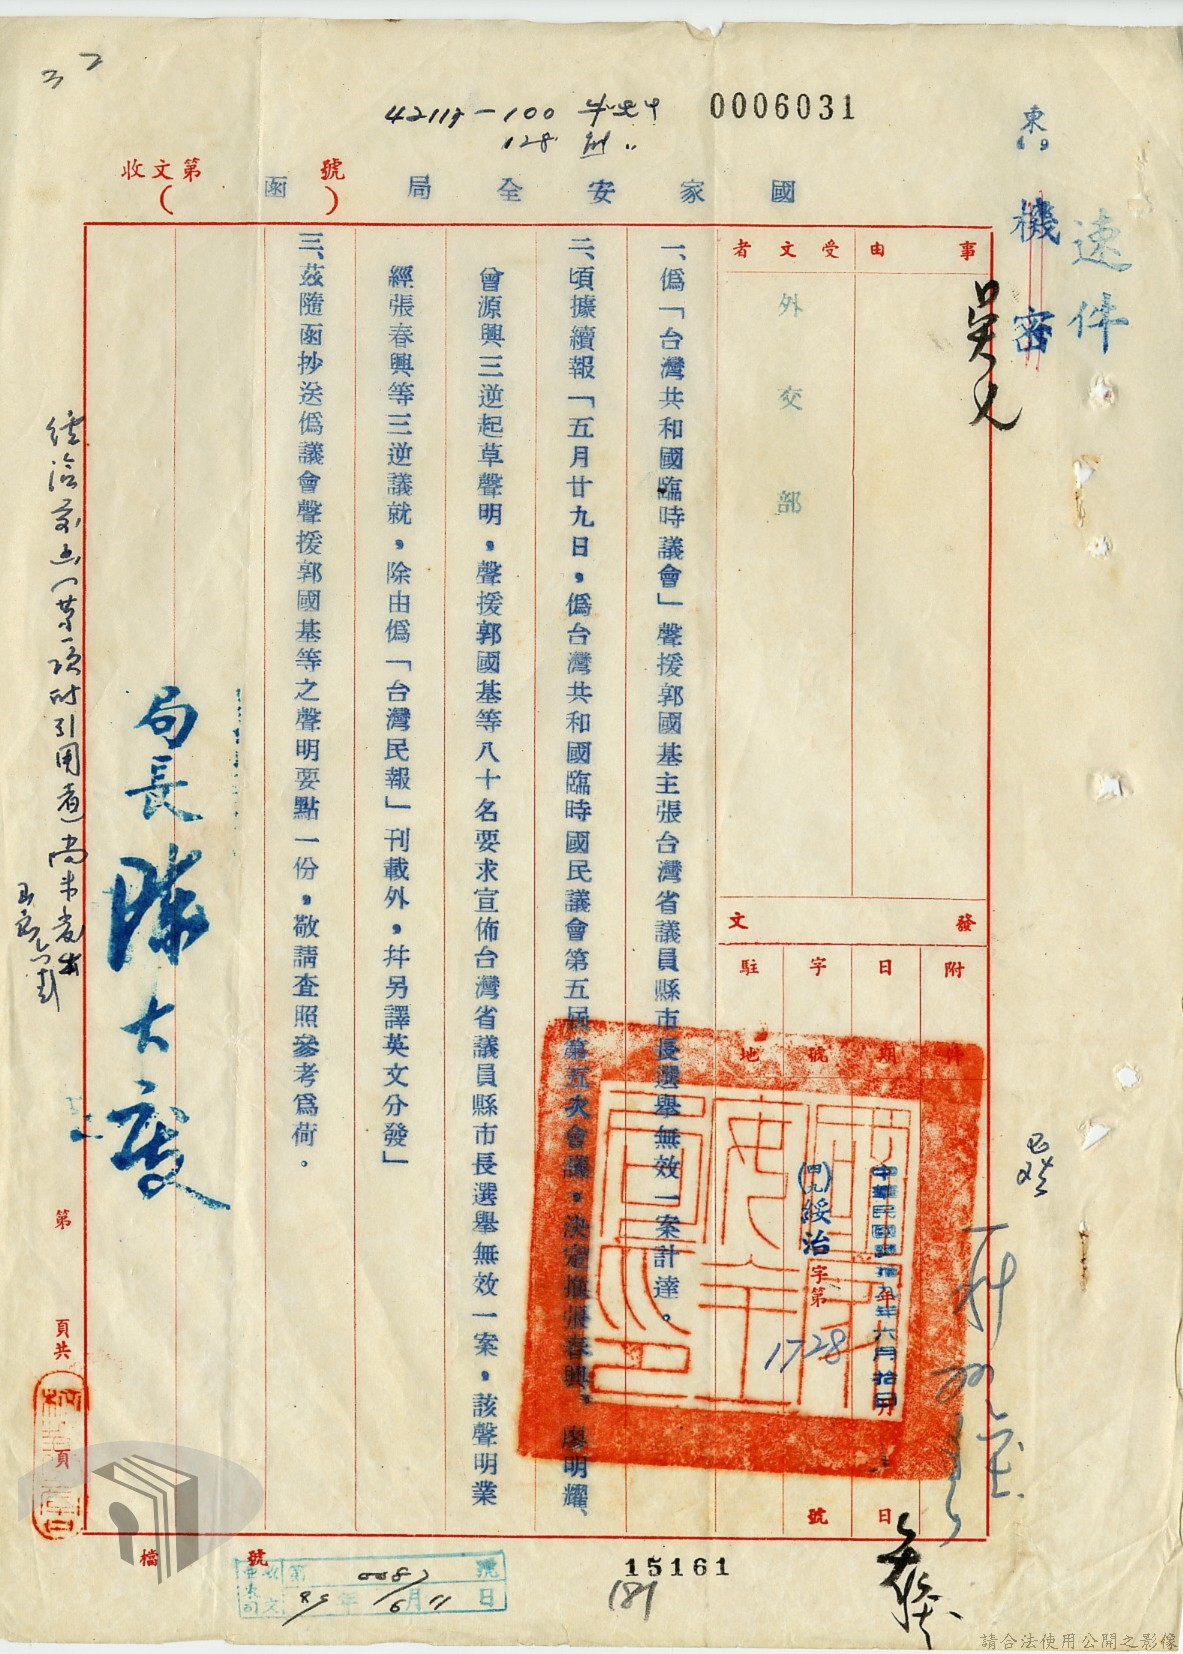 0006031
東
速件
機密
國家安全局函
收文第　號
(　)
事由
受文者
外交部
發文
附件
日期
字號
駐地
中華民國肆拾九年六月拾日
(四九)綏治字第1728號
一、僞「台灣共和國臨時議會」聲援郭國基主張台灣省議員縣市長選舉無效一案計達。
二、頃據續報「五月廿九日，僞台灣共和國臨時國民議會第五屆第五次會議，決定推張春興、廖明耀、
曾源興三逆起草聲明，聲援郭國基等八十名要求宣佈台灣省議員縣市長選舉無效一案，該聲明業
經張春興等三逆議就，除由僞「台灣民報」刊載外，幷另譯英文分發」
三、茲隨函抄送僞議會聲援郭國基等之聲明要點一份，敬請查照參考爲荷。
局長陳大慶
第　頁共　頁
檔　號
收文
第　號
年6月11日
15161
181
請合法使用公開之影像